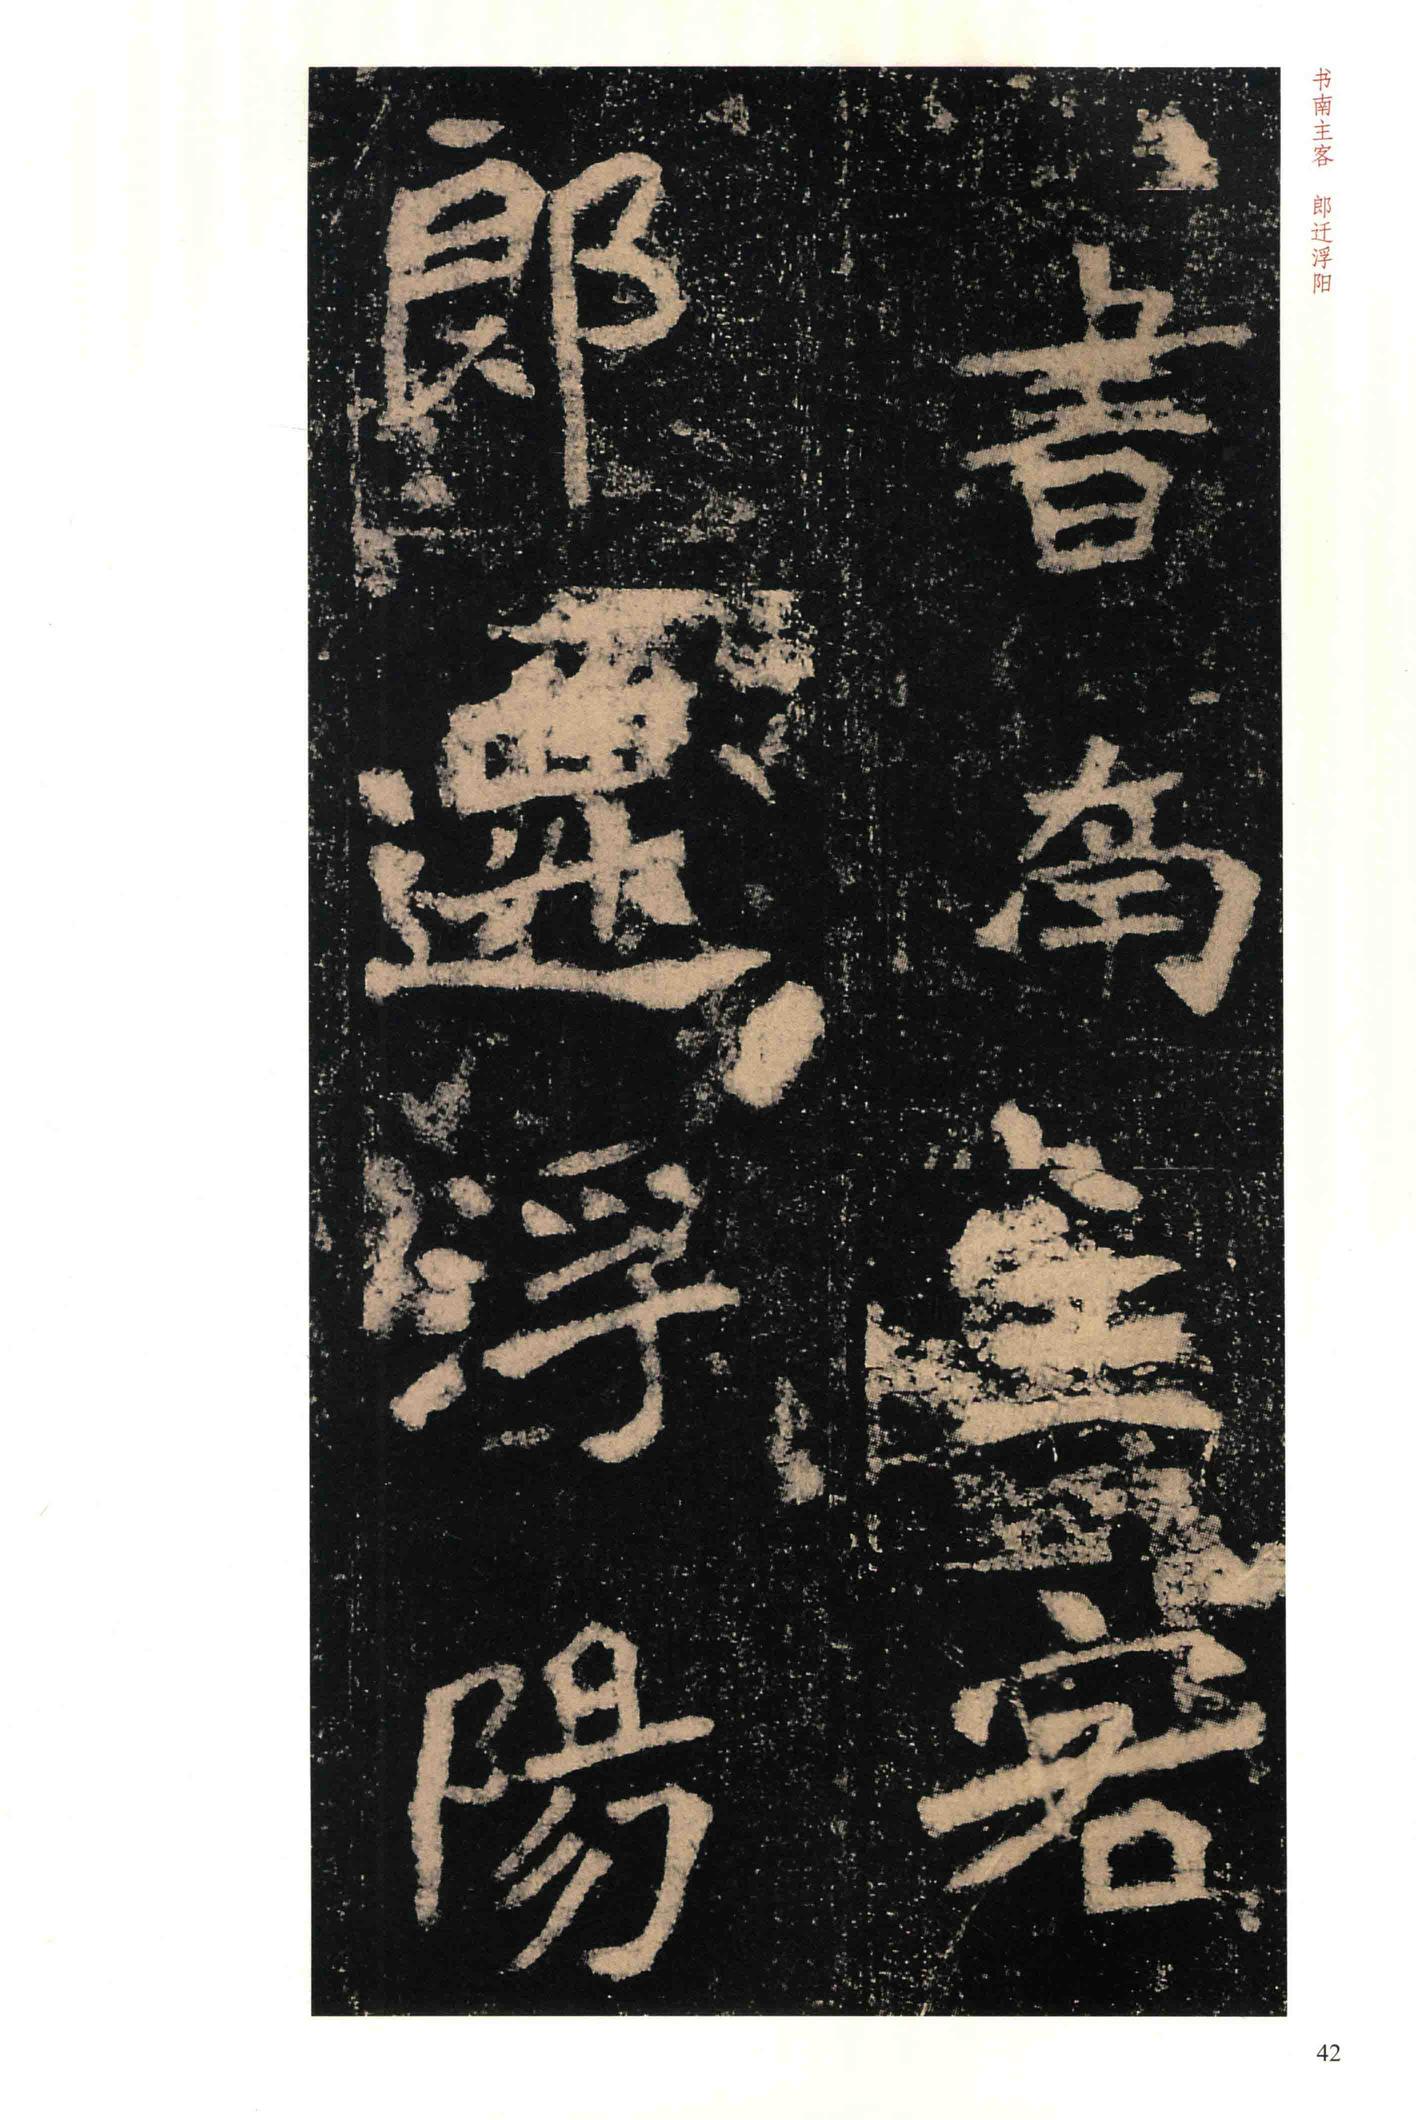 书南主客 郎迁浮阳
書南主客
郎遷浮陽
42